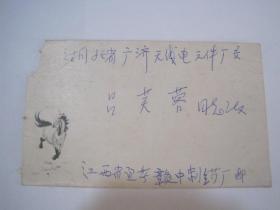 湖北省广济无线电元件厂交
吕芙蓉 同志收
江西省 中制药厂